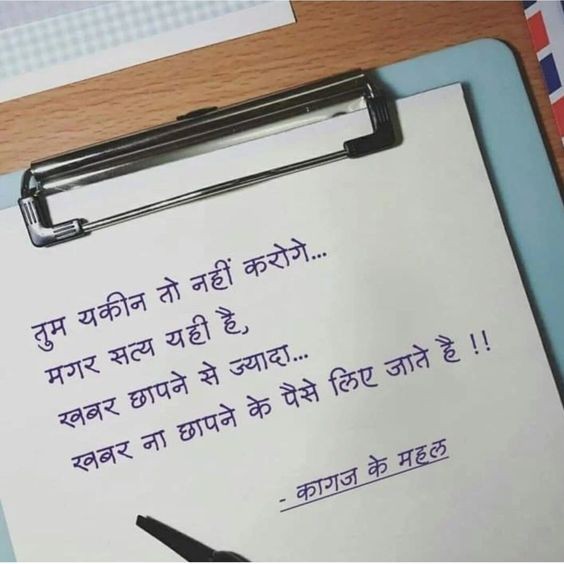 तुम यकीन तो नहीं करोगे...
मगर सत्य यही है,
खबर छापने से ज्यादा...
खबर ना छापने के पैसे लिए जाते है !!
- कागज के महल